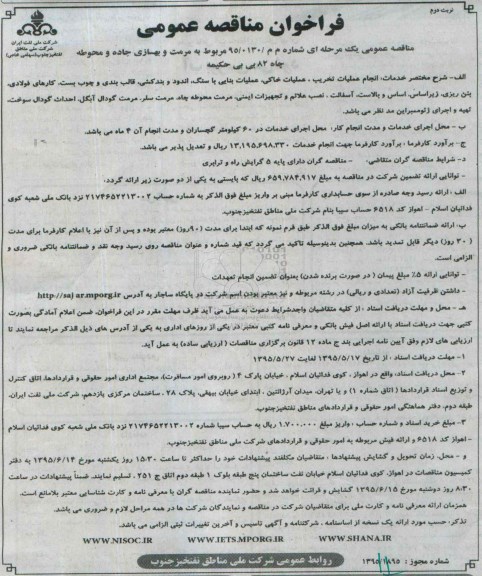 نوبت دوم
فراخوان مناقصه عمومی
شرکت ملی نفت ایران
شرکت ملی مناطق نفتخیز جنوب (سهامی خاص)
مناقصه عمومی یک مرحله ای شماره م م /۹۵/۰۱۳۰ مربوط به مرمت و بهسازی جاده و محوطه
چاه ۸۲ بی بی حکیمه
الف- شرح مختصر خدمات: انجام عملیات تخریب، عملیات خاکی، عملیات بنایی با سنگ، اندود و بندکشی، قالب بندی و چوب بست، کارهای فولادی،
بتن ریزی، زیراساس، اساس و بالاست، آسفالت، نصب علائم و تجهیزات ایمنی، مرمت محوطه چاه، مرمت سلر، مرمت گودال آبگل، احداث گودال سوخت،
تهیه و اجرای ژئوممبراین مد نظر می باشد.
ب- محل اجرای خدمات و مدت انجام کار: محل اجرای خدمات در ۶۰ کیلومتر گچساران و مدت انجام آن ۴ ماه می باشد.
ج- برآورد کارفرما: برآورد کارفرما جهت انجام خدمات ۱۳,۱۹۵,۶۹۸,۳۳۰ ریال و تعدیل پذیر می باشد.
د- شرایط مناقصه گران متقاضی: - مناقصه گران دارای پایه ۵ گرایش راه و ترابری
- توانایی ارائه تضمین شرکت در مناقصه به مبلغ ۶۵۹,۷۸۴,۹۱۷ ریال که بایستی به یکی از دو صورت زیر ارائه گردد.
الف: ارائه رسید وجه صادره از سوی حسابداری کارفرما مبنی بر واریز مبلغ فوق الذکر به شماره حساب ۲۱۷۴۶۵۲۲۱۳۰۰۲ نزد بانک ملی شعبه کوی
فدائیان اسلام - اهواز کد ۶۵۱۸ حساب سیبا بنام شرکت ملی مناطق نفتخیزجنوب.
ب: ارائه ضمانتنامه بانکی به میزان مبلغ فوق الذکر طبق فرم نمونه که ابتدا برای مدت (۹۰روز) معتبر بوده و پس از آن نیز با اعلام کارفرما برای مدت
(۳۰ روز) دیگر قابل تمدید باشد. همچنین بدینوسیله تاکید می گردد که قید شماره و عنوان مناقصه روی رسید وجه نقد و ضمانتنامه بانکی ضروری و
الزامی است.
- توانایی ارائه ۵٪ مبلغ پیمان (در صورت برنده شدن) بعنوان تضمین انجام تعهدات
- داشتن ظرفیت آزاد (تعدادی و ریالی) در رشته مربوطه و نیز معتبر بودن اسم شرکت در پایگاه ساجار به آدرس http://sajar.mporg.ir
هـ- محل و مهلت دریافت اسناد: از کلیه متقاضیان واجدشرایط دعوت به عمل می آید ظرف مهلت مقرر در این فراخوان، ضمن اعلام آمادگی بصورت
کتبی جهت دریافت اسناد با ارائه اصل فیش بانکی و معرفی نامه کتبی معتبر در یکی از روزهای اداری به یکی از آدرس های ذیل الذکر مراجعه نمایند تا
ارزیابی های لازم وفق آیین نامه اجرایی بند ج ماده ۱۲ قانون برگزاری مناقصات (ارزیابی ساده) به عمل آید.
۱- مهلت دریافت اسناد: از تاریخ ۱۳۹۵/۵/۱۷ لغایت ۱۳۹۵/۵/۲۷
۲- محل دریافت اسناد: واقع در اهواز، کوی فدائیان اسلام، خیابان پارک ۴ (روبروی امور مسافرت)، مجتمع اداری امور حقوقی و قراردادها، اتاق کنترل
و توزیع اسناد قراردادها (اتاق شماره ۱) و یا تهران، میدان آرژانتین، ابتدای خیابان بیهقی، پلاک ۲۸، ساختمان مرکزی یازدهم، شرکت ملی نفت ایران،
طبقه دوم، دفتر هماهنگی امور حقوقی و قراردادهای مناطق نفتخیزجنوب.
۳- مبلغ خرید اسناد و شماره حساب: واریز مبلغ ۱.۷۰۰.۰۰۰ ریال به حساب سیبا شماره ۲۱۷۴۶۵۲۲۱۳۰۰۲ نزد بانک ملی شعبه کوی فدائیان اسلام
- اهواز کد ۶۵۱۸ و ارائه فیش مربوطه به امور حقوقی و قراردادهای شرکت ملی مناطق نفتخیزجنوب.
و- محل، زمان تحویل و گشایش پیشنهادها: متقاضیان مکلفند پیشنهادات خود را حداکثر تا ساعت ۱۵:۳۰ روز یکشنبه مورخ ۱۳۹۵/۶/۱۴ به دفتر
کمیسیون مناقصات در اهواز، کوی فدائیان اسلام خیابان نفت ساختمان پنج طبقه بلوک ۱ طبقه دوم اتاق ج ۲۵۱، تسلیم نمایند. ضمناً پیشنهادات در ساعت
۸:۳۰ روز دوشنبه مورخ ۱۳۹۵/۶/۱۵ گشایش و قرائت خواهد شد و حضور نماینده مناقصه گران با معرفی نامه و کارت شناسایی معتبر بلامانع است.
همزمان ارائه معرفی نامه و کارت ملی برای متقاضیان شرکت در مناقصه و نمایندگان شرکت ها در همه مراحل لازم و ضروری می باشد.
تذکر: حسب مورد ارائه یک نسخه از اساسنامه، شرکتنامه و آگهی تاسیس و آخرین تغییرات ثبتی الزامی می باشد.
WWW.NISOC.IR WWW.IETS.MPORG.IR WWW.SHANA.IR
روابط عمومی شرکت ملی مناطق نفتخیزجنوب
شماره مجوز: